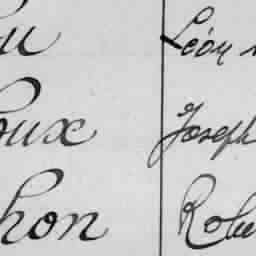 u Léon
oux Joseph
hon Robe